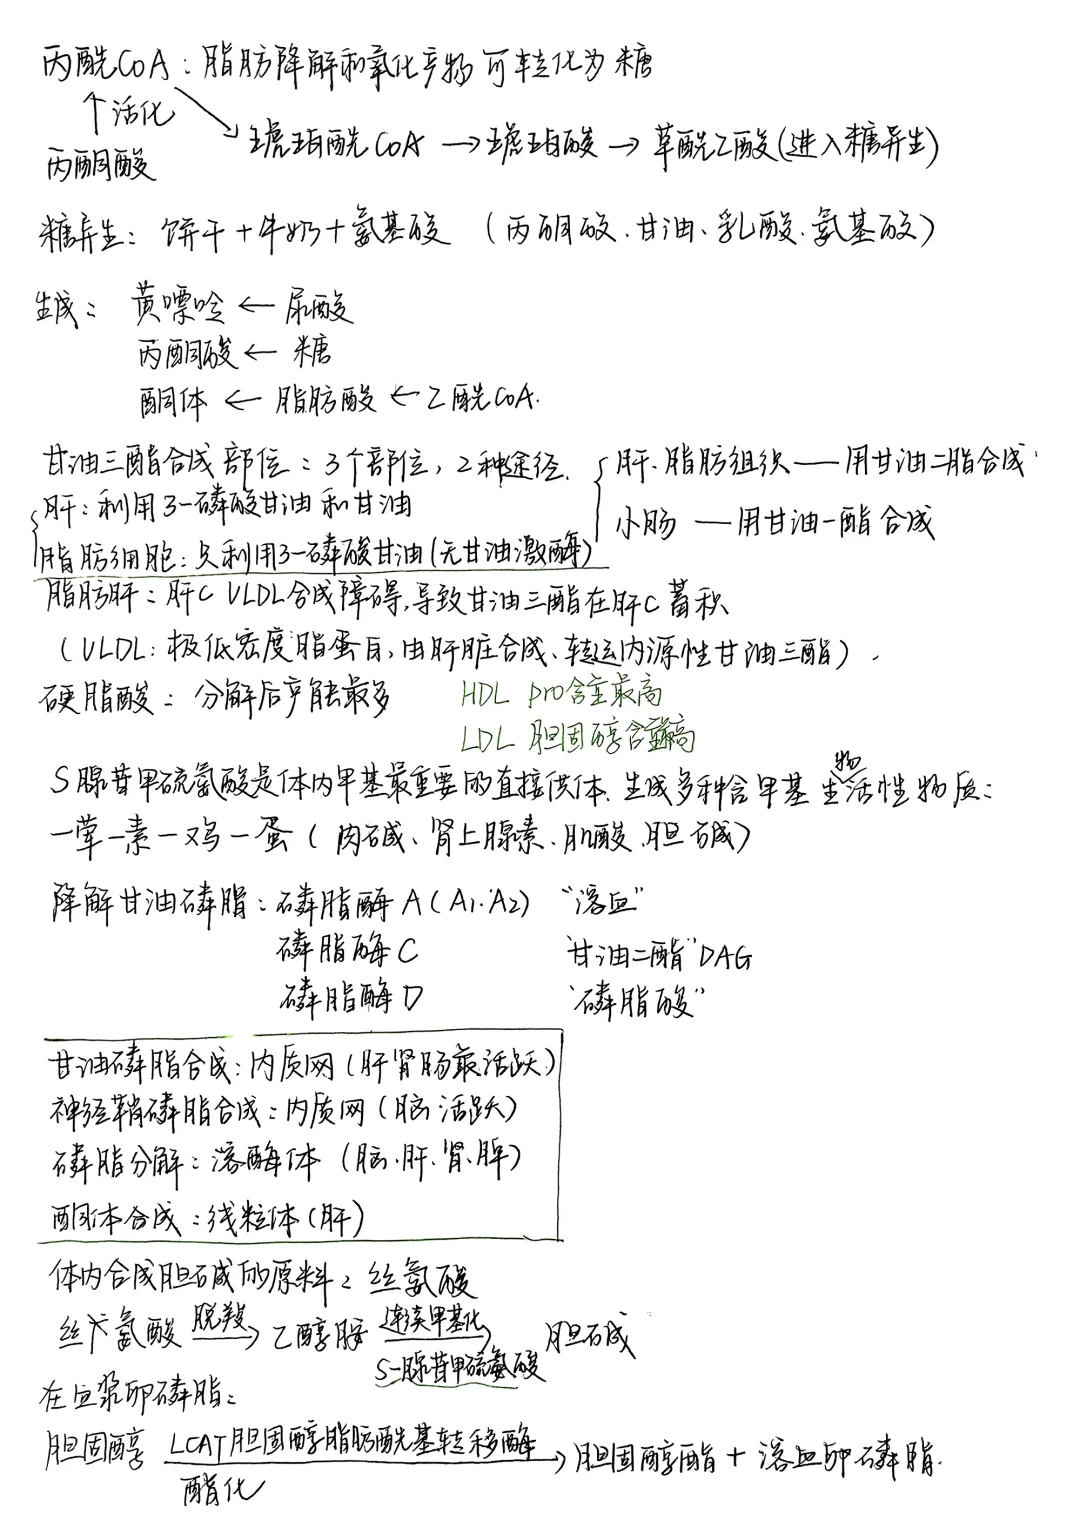 丙酰CoA：脂肪降解和氧化产物可转化为糖
↑活化
丙酮酸
琥珀酰CoA → 琥珀酸 → 草酰乙酸(进入糖异生)
糖异生：饼干+牛奶+氨基酸 (丙酮酸、甘油、乳酸、氨基酸)
生成：黄嘌呤 ← 尿酸
丙酮酸 ← 糖
酮体 ← 脂肪酸 ← 乙酰CoA.
甘油三酯合成部位：3个部位，2种途径.
肝、脂肪组织 — 用甘油二脂合成
小肠 — 用甘油一酯合成
肝：利用3-磷酸甘油和甘油
脂肪细胞：只利用3-磷酸甘油(无甘油激酶)
脂肪肝：肝C VLDL合成障碍,导致甘油三酯在肝C蓄积
(VLDL：极低密度脂蛋白,由肝脏合成、转运内源性甘油三酯).
硬脂酸：分解后产能最多
HDL pro含量最高
LDL 胆固醇含量高
S腺苷甲硫氨酸是体内甲基最重要的直接供体.生成多种含甲基生物活性物质：
一荤一素一鸡一蛋(肉碱、肾上腺素、肌酸、胆碱)
降解甘油磷脂：磷脂酶A(A1.A2) “溶血”
磷脂酶C “甘油二酯”DAG
磷脂酶D “磷脂酸”
甘油磷脂合成：内质网(肝肾肠最活跃)
神经鞘磷脂合成：内质网(脑活跃)
磷脂分解：溶酶体(脑.肝.肾.脾)
酮体合成：线粒体(肝)
体内合成胆碱的原料：丝氨酸
丝氨酸 脱羧→ 乙醇胺 连续甲基化→ 胆碱
S-腺苷甲硫氨酸
在血浆卵磷脂：
胆固醇 LCAT胆固醇脂肪酰基转移酶→ 胆固醇酯+溶血卵磷脂.
酯化